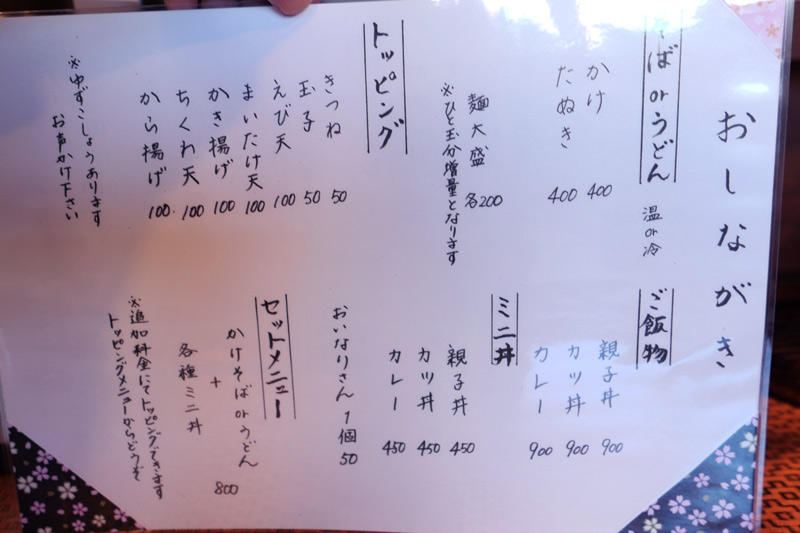 おしながき
そばorうどん 温or冷
かけ 400
たぬき 400
麺大盛 各200
※ひと玉分増量となります
トッピング
きつね 50
玉子 50
えび天 100
まいたけ天 100
かき揚げ 100
ちくわ天 100
から揚げ 100
※ゆずこしょうあります
お声かけ下さい
ご飯物
親子丼 900
カツ丼 900
カレー 900
ミニ丼
親子丼 450
カツ丼 450
カレー 450
おいなりさん 1個 50
セットメニュー
かけそばorうどん
+
各種ミニ丼
800
※追加料金にてトッピングできます
トッピングメニューからどうぞ